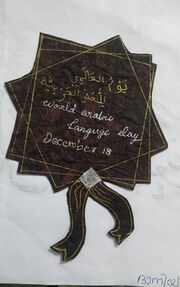 يوم العالمي
للغة العربية
World arabic
Languge day
December 18